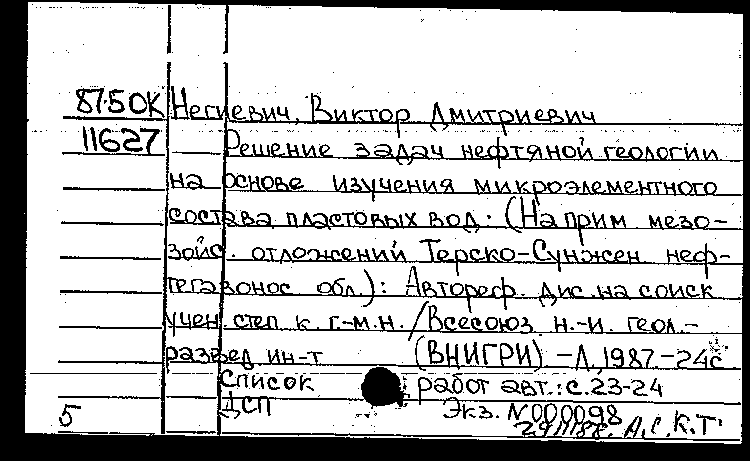 87-5 OK Негиевич, Виктор Дмитриевич
11627 Решение задач нефтяной геологии
на основе изучения микроэлементного
состава пластовых вод. (На прим мезо-
зойс. отложений Терско-Сунжен неф-
тегазонос обл.): Автореф. дис. на соиск
учен степ к г.-м.н. /Всесоюз н.-и. геол.-
развед ин-т (ВНИГРИ) -Л, 1987.-24с
Список работ авт.: с.23-24
ДСП Экз. N000098
5